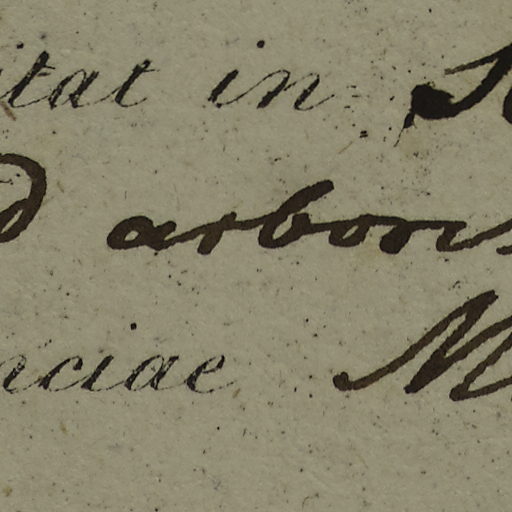 itat in
d arboris
nciae M